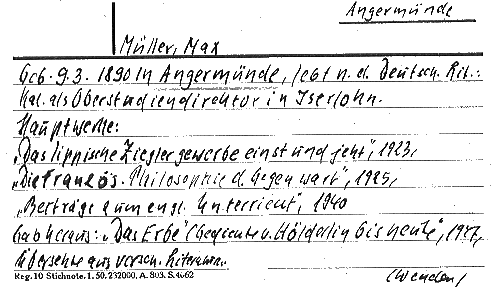 Angermünde
Müller, Max
Geb. 9.3.1890 in Angermünde, lebt n. d. Deutsch. Lit.-
Kal. als Oberstudiendirektor in Iserlohn.
Hauptwerke:
„Das lippische Zieglergewerbe einst und jetzt", 1923,
„Die französ. Philosophie d. Gegenwart", 1925,
„Beiträge zum engl. Unterricht", 1940
Gab heraus: „Das Erbe" (Gedichte v. Hölderlin bis heute), 1947,
Übersetzte aus versch. Literaturen.
Reg. 10 Stichnote. 1. 50. 232000. A. 803. S. 4662
(Wenden)